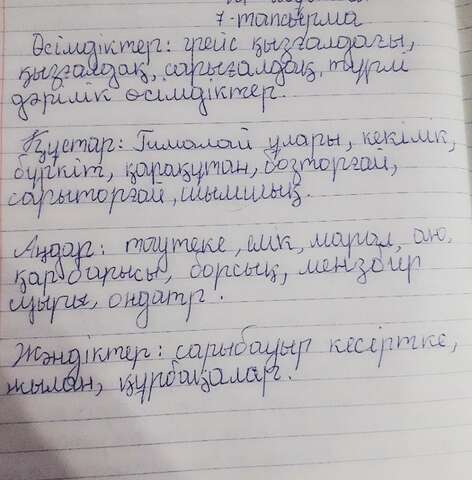 7-тапсырма
Өсімдіктер: грейс қызғалдағы,
қызғалдақ, сарығалдақ, түрлі
дәрілік өсімдіктер.
Құстар: Гималай ұлары, кекілік,
бүркіт, қарақұтан, бозторғай,
сарыторғай, шымшық.
Аңдар: тәутеке, елік, марал, аю,
қар барысы, борсық, мензбир
суыры, ондатр.
Жәндіктер: сарыбауыр кесіртке,
жылан, құрбақалар.